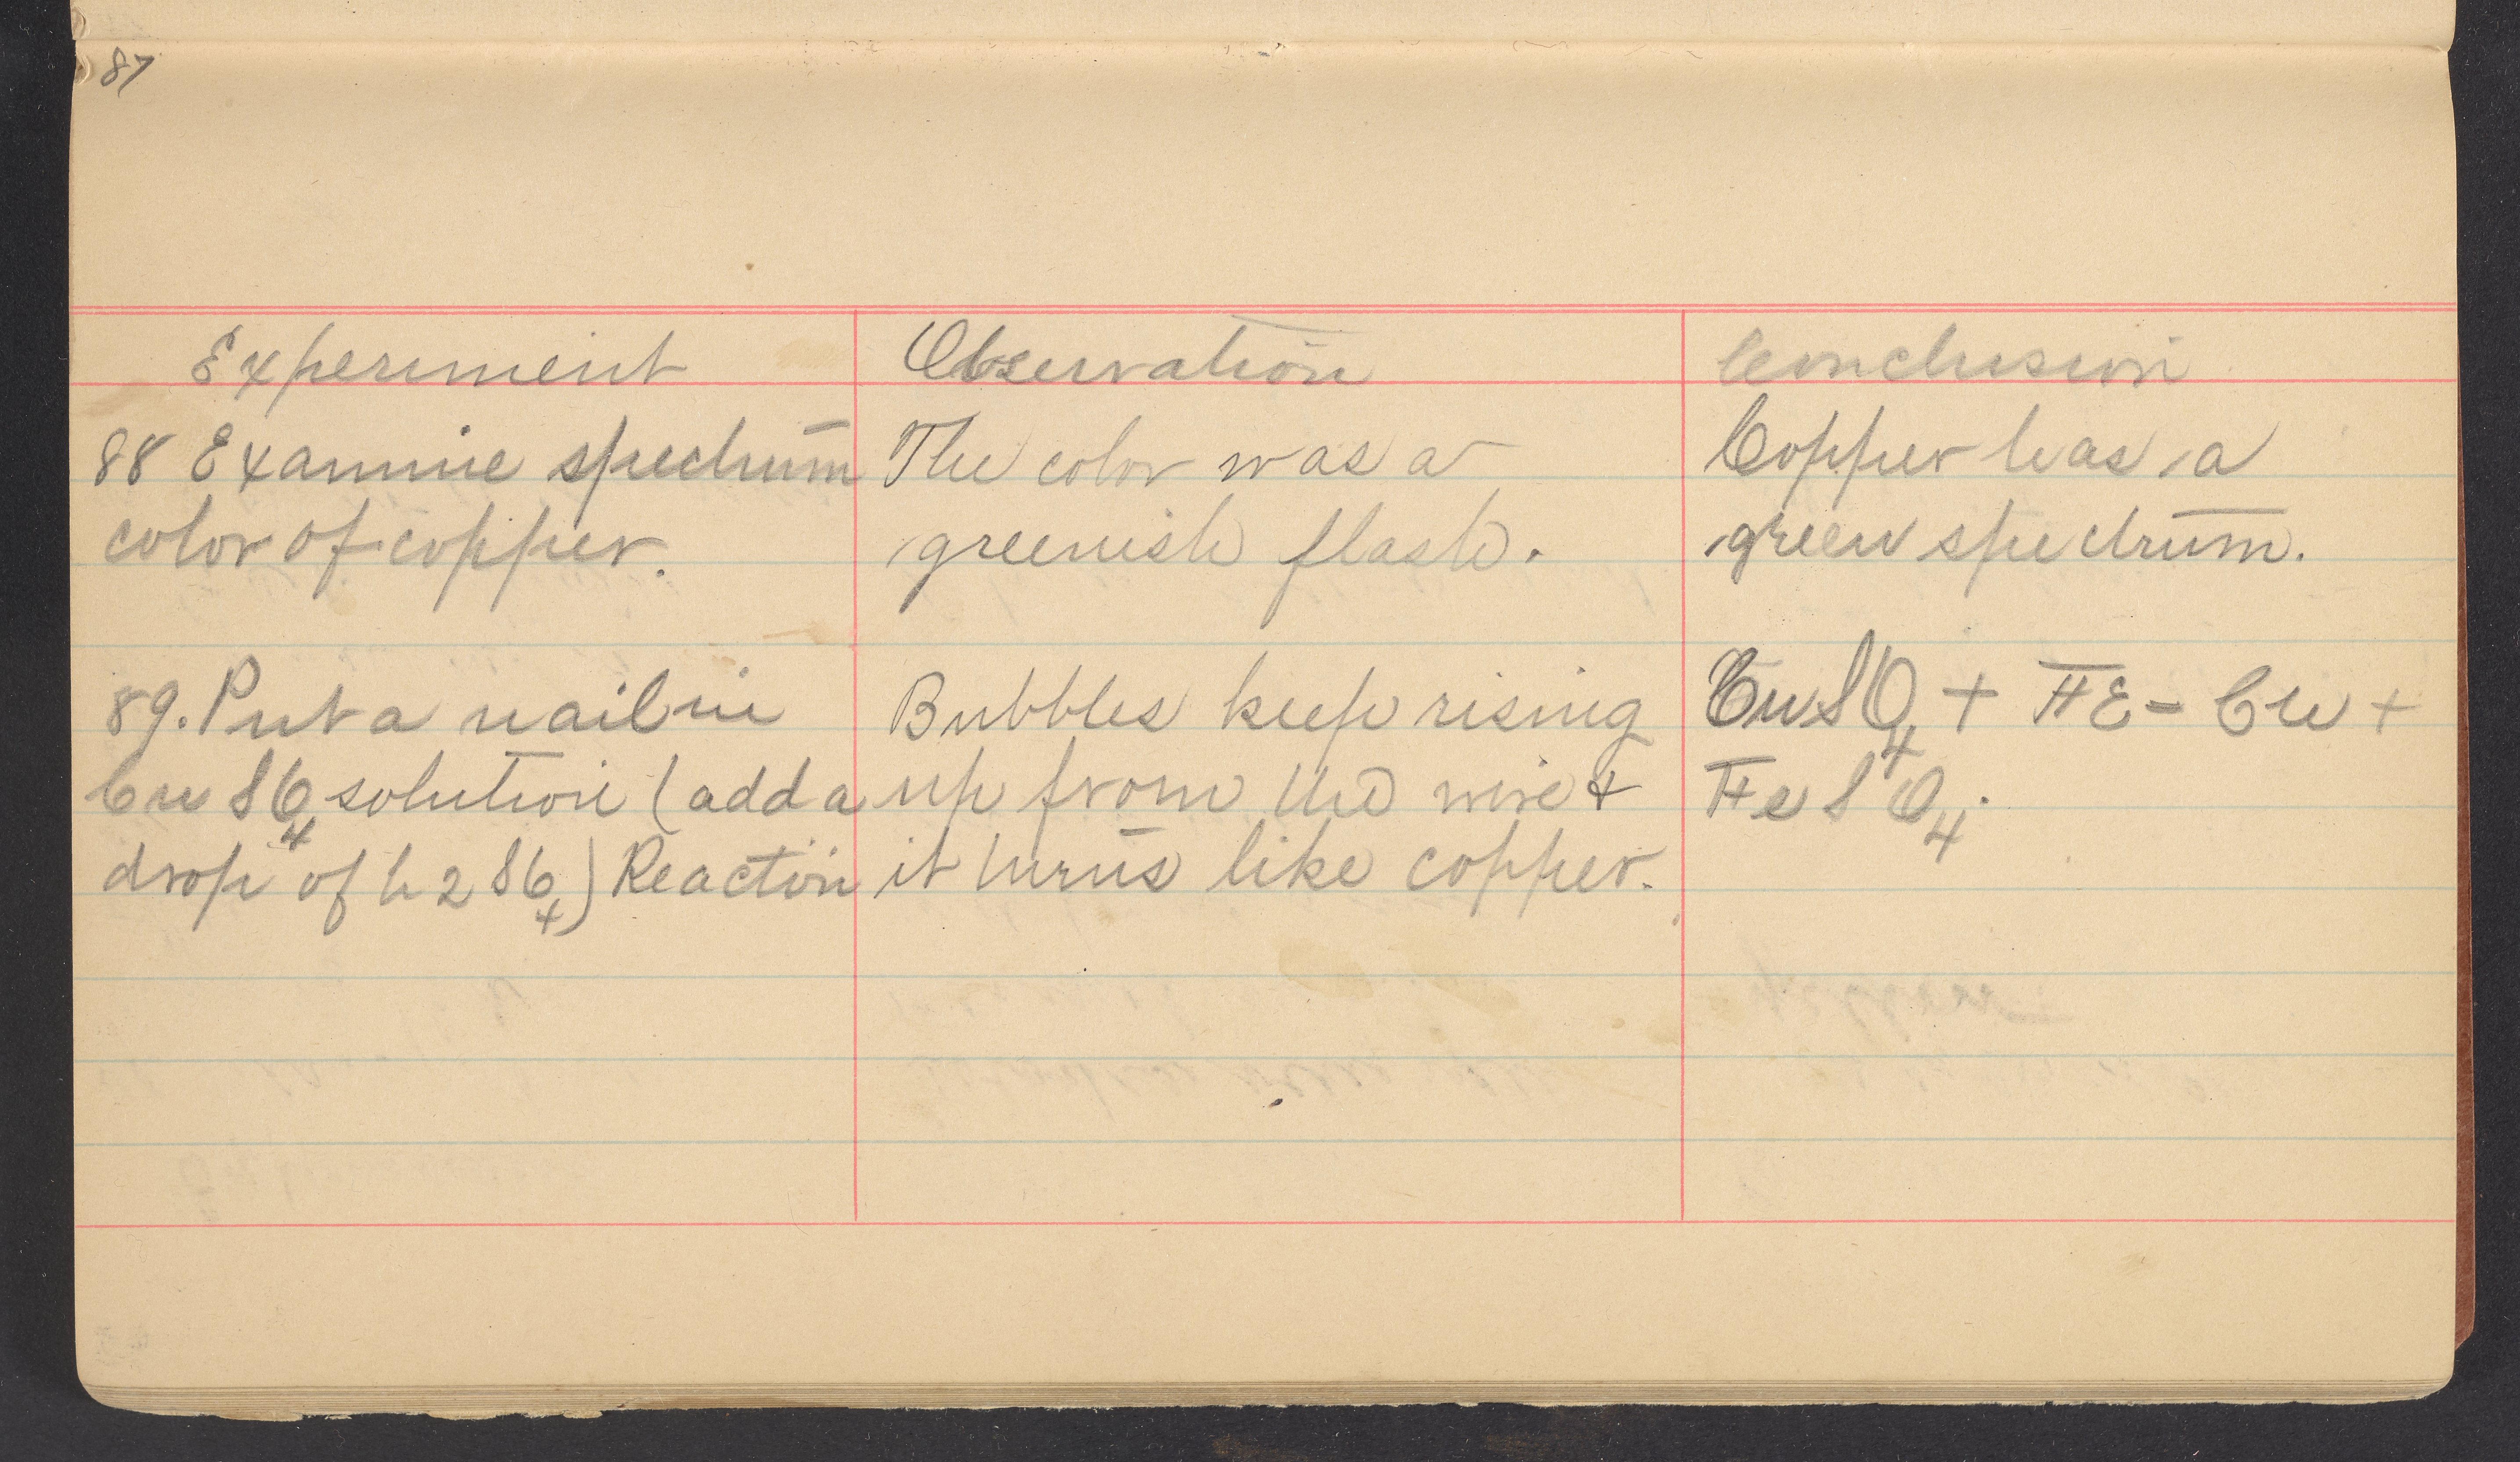 87
Experiment
88 Examine spectrum
color of copper.
89. Put a nail in
CuSO4 solution (add a
drop of h2SO4) Reaction
Observation
The color was a
greenish flash.
Bubbles keep rising
up from the wire &
it turns like copper.
Conclusion
Copper has a
green spectrum.
CuSO4 + FE - Cu +
FeSO4.